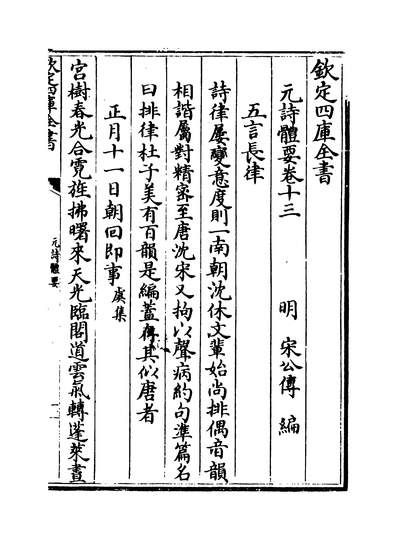 欽定四庫全書
元詩體要卷十三
明 宋公傳 編
五言長律
詩律屢變意度則一南朝沈休文輩始尚排偶音韻
相諧屬對精密至唐沈宋又拘以聲病約句準篇名
曰排律杜子美有百韻是編蓋得其似唐者
正月十一日朝回即事 虞集
宮樹春光合霓旌拂曙來天光臨閣道雲氣轉蓬萊晝
欽定四庫全書
元詩體要